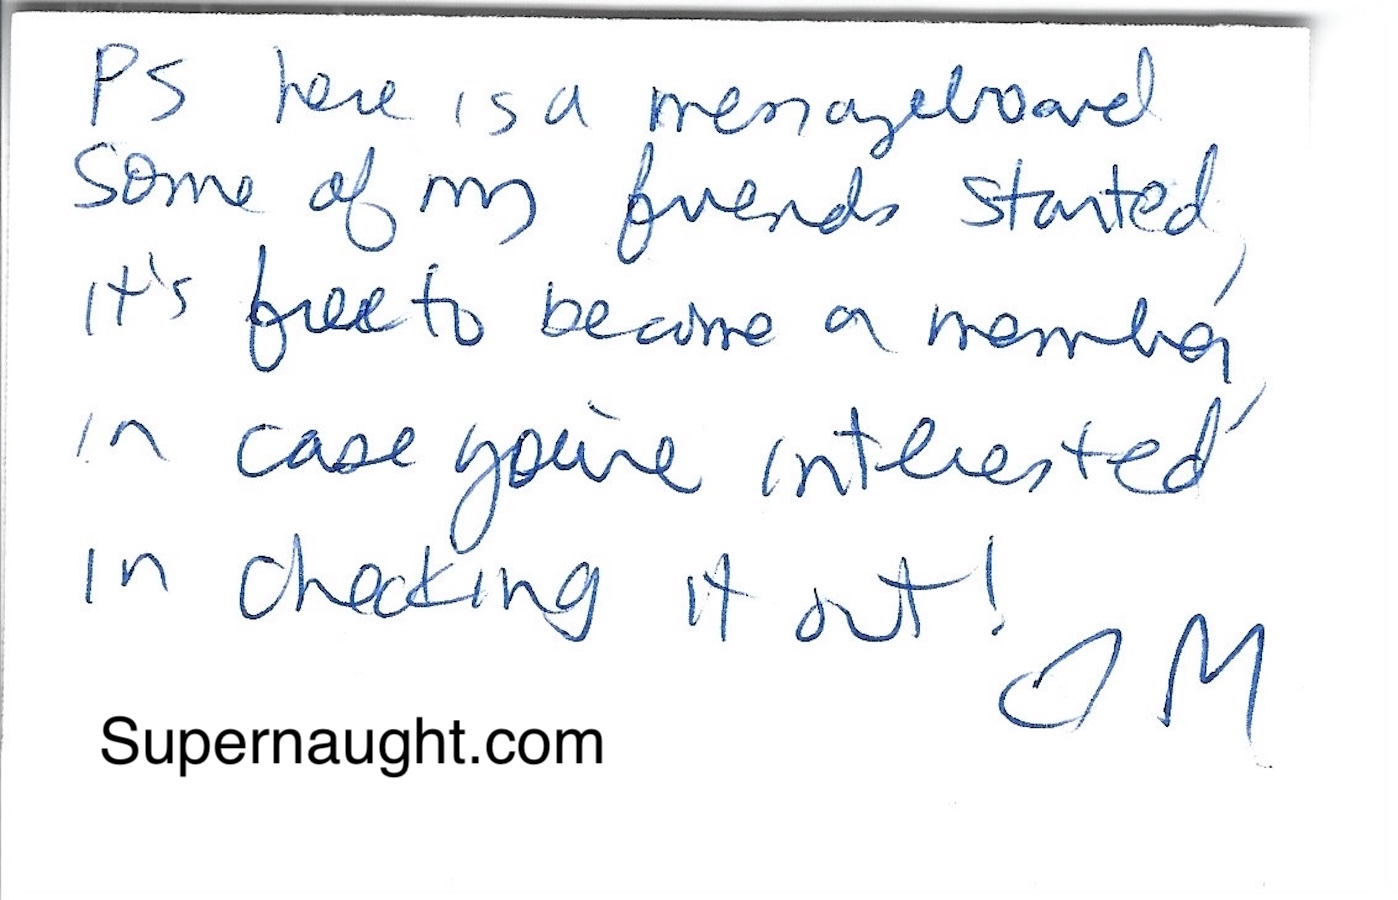 PS here is a messageboard
some of my friends started,
it's free to become a member,
in case you're interested
in checking it out!
JM
Supernaught.com